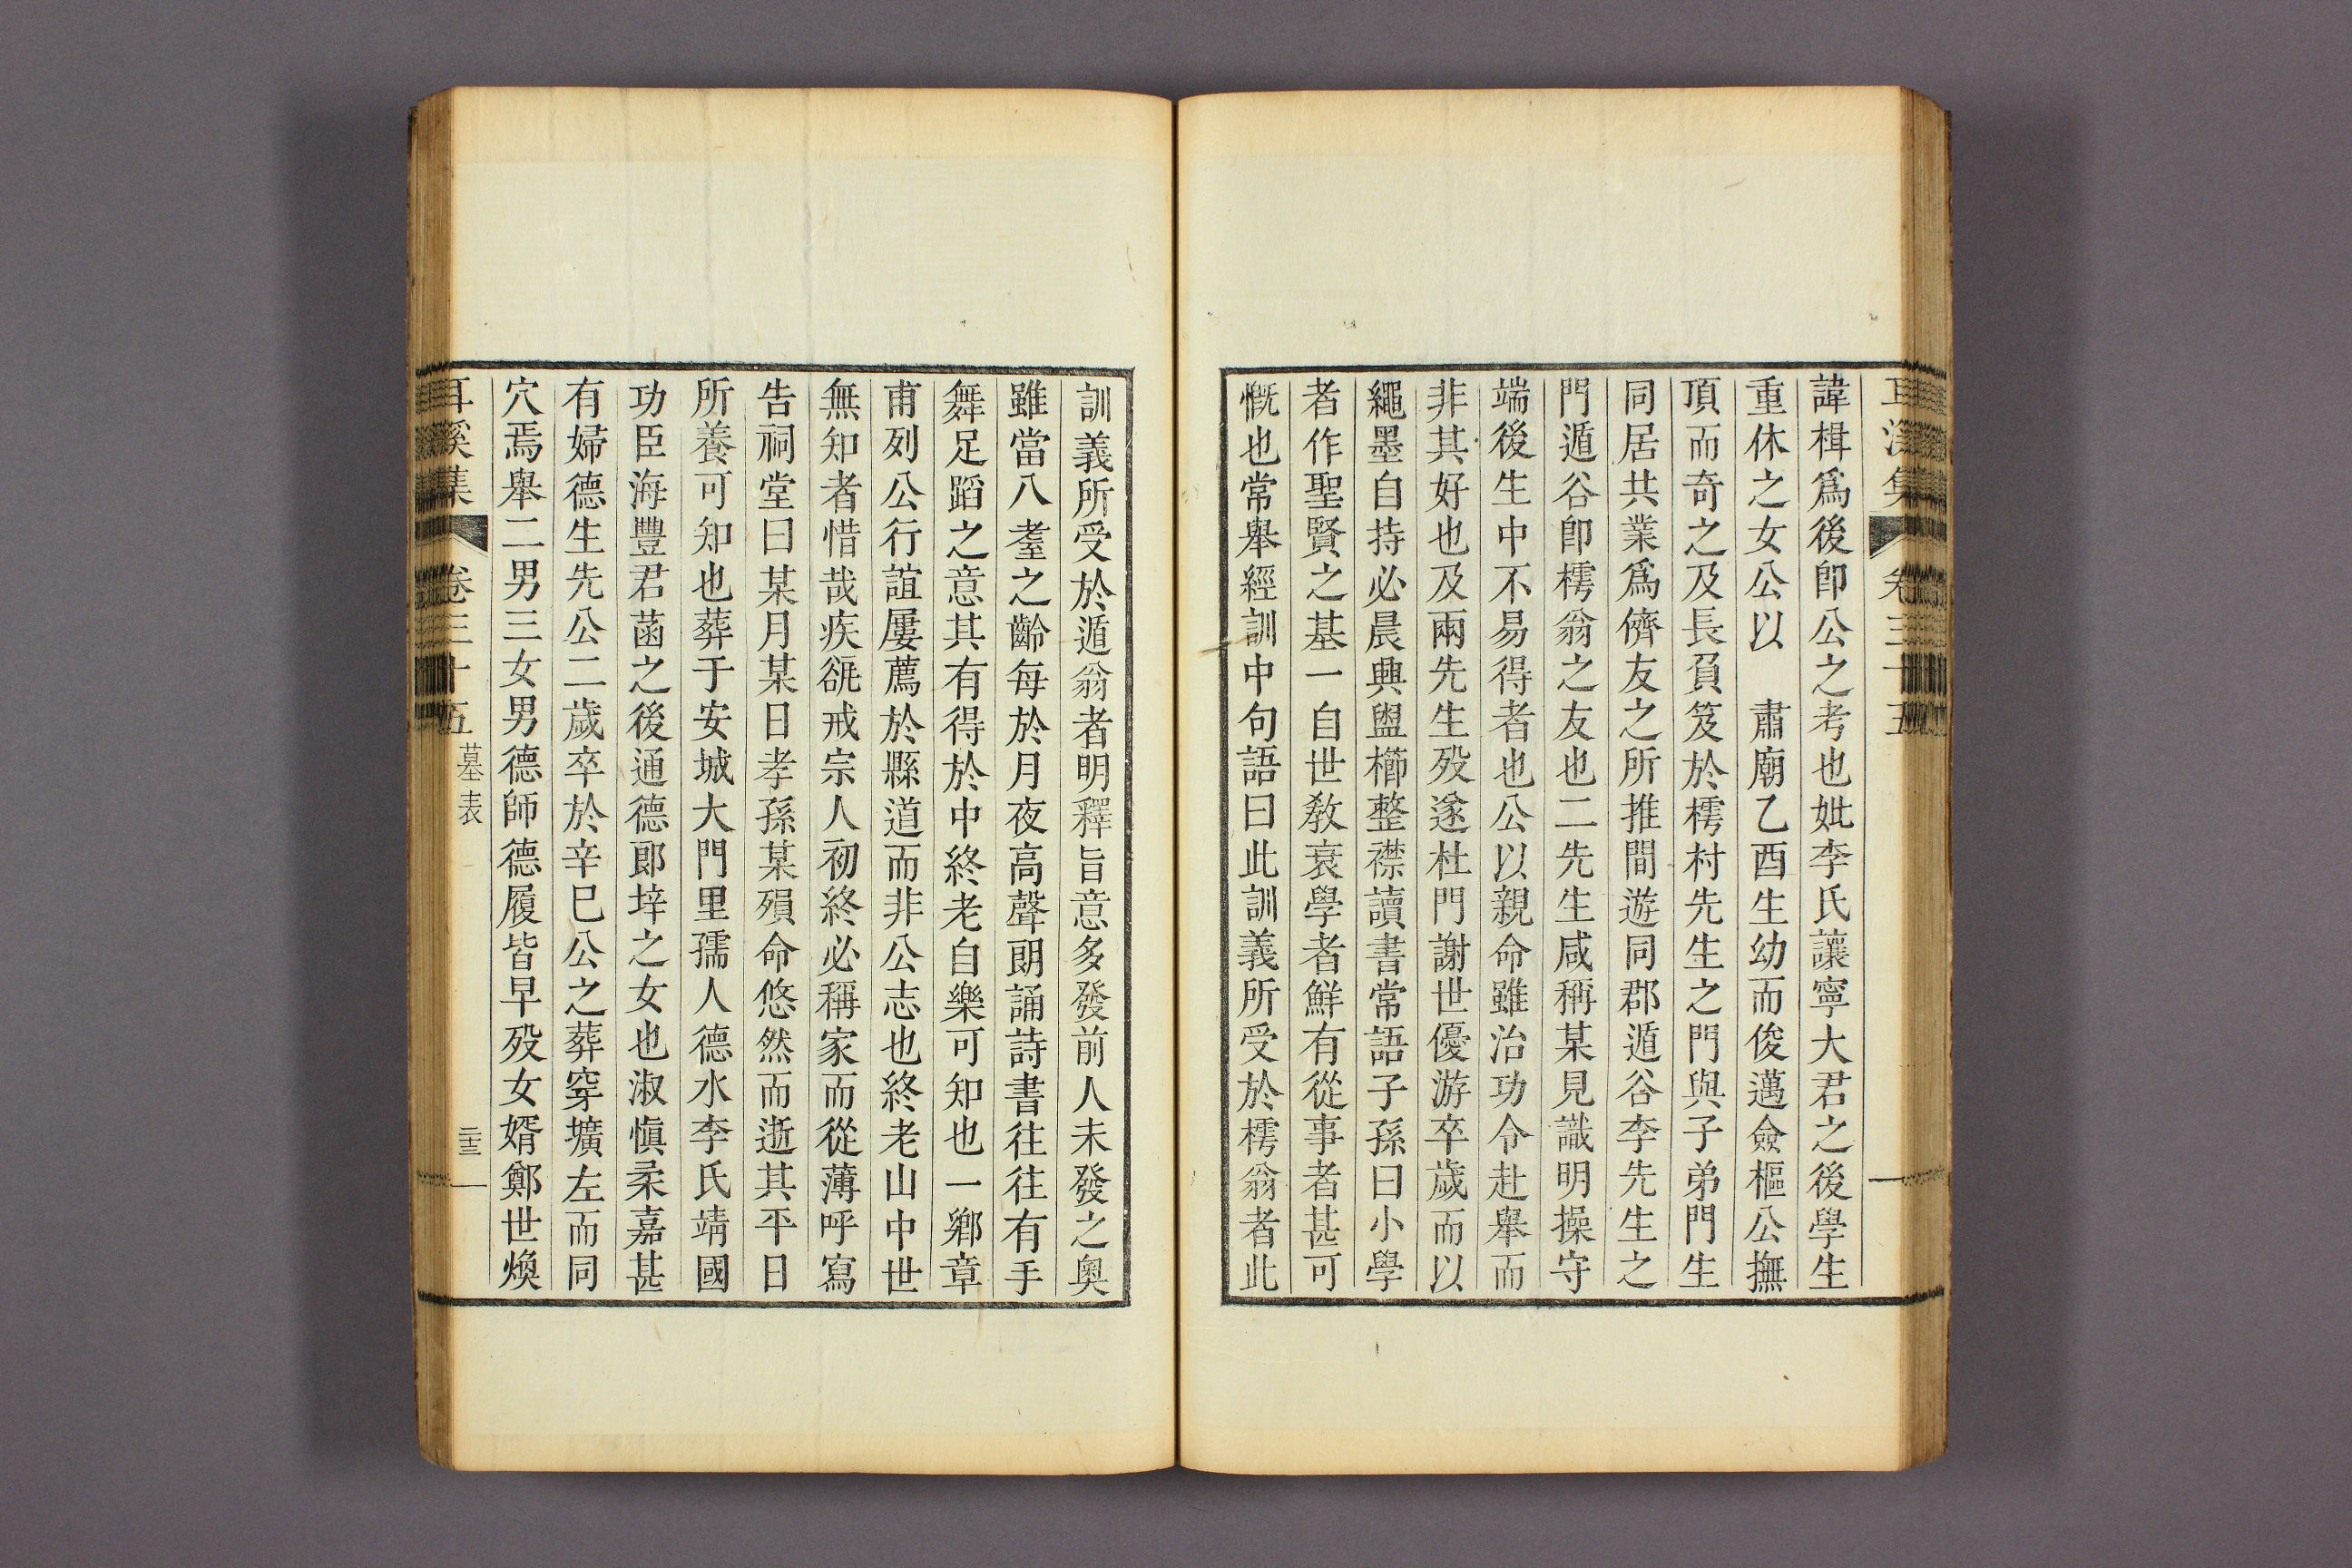 耳溪集 卷三十五
諱楫爲後卽公之考也妣李氏讓寧大君之後學生
重休之女公以 肅廟乙酉生幼而俊邁僉樞公撫
頂而奇之及長負笈於樗村先生之門與子弟門生
同居共業爲儕友之所推間遊同郡遁谷李先生之
門遁谷卽樗翁之友也二先生咸稱某見識明操守
端後生中不易得者也公以親命雖治功令赴舉而
非其好也及兩先生歿遂杜門謝世優游卒歲而以
繩墨自持必晨興盥櫛整襟讀書常語子孫曰小學
者作聖賢之基一自世敎衰學者鮮有從事者甚可
慨也常舉經訓中句語曰此訓義所受於樗翁者此
訓義所受於遁翁者明釋旨意多發前人未發之奧
雖當八耋之齡每於月夜高聲朗誦詩書往往有手
舞足蹈之意其有得於中終老自樂可知也一鄕章
甫列公行誼屢薦於縣道而非公志也終老山中世
無知者惜哉疾瓻戒宗人初終必稱家而從薄呼寫
告祠堂曰某月某日孝孫某殞命悠然而逝其平日
所養可知也葬于安城大門里孺人德水李氏靖國
功臣海豐君菡之後通德郞垶之女也淑愼柔嘉甚
有婦德生先公二歲卒於辛巳公之葬穿壙左而同
穴焉舉二男三女男德師德履皆早歿女婿鄭世煥
耳溪集 卷三十五 墓表 二十三